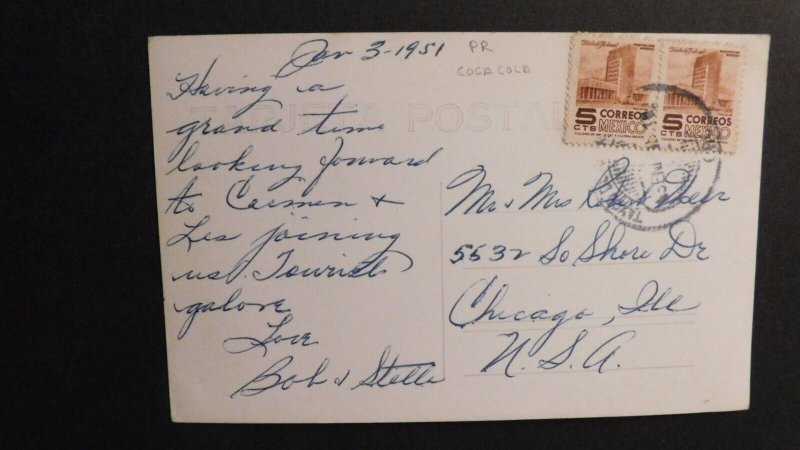 Jan 3-1951
PR
COCA COLA
TARJETA POSTAL
Having a
grand time
looking forward
to Carmen &
Les joining
us. Tourists
galore
Love
Bob & Stella
5 CTS CORREOS MEXICO
5 CTS CORREOS MEXICO
Mr & Mrs Robert
5532 So Shore Dr
Chicago, Ill
U.S.A.